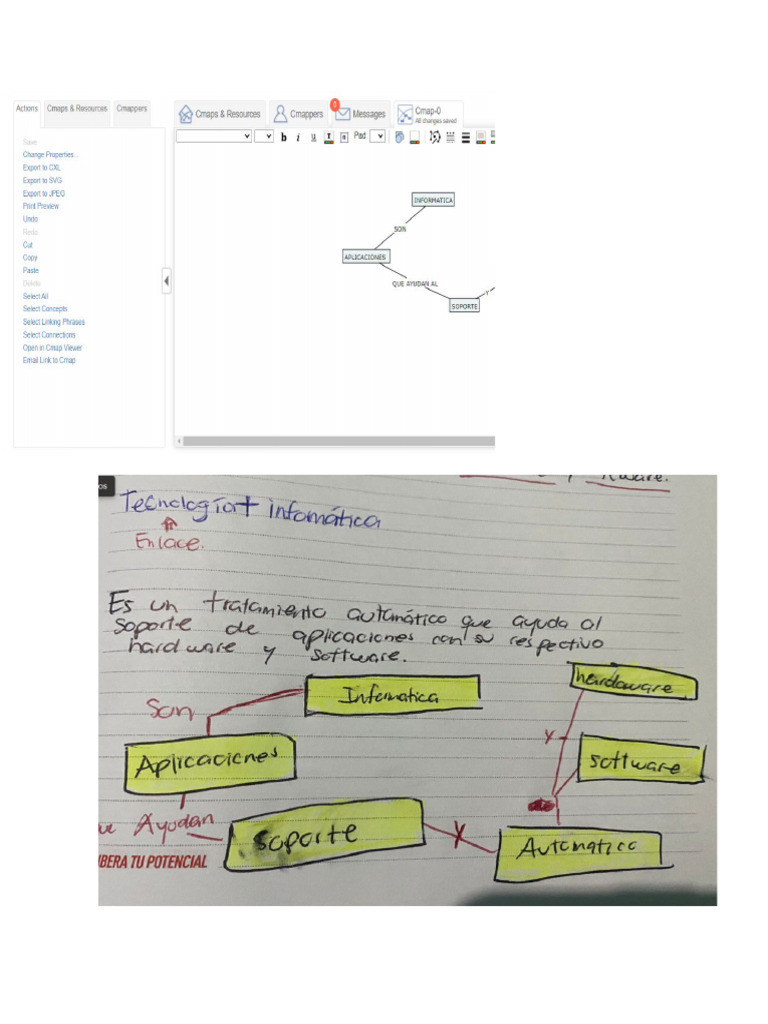 Actions
Cmaps & Resources
Cmappers
Cmaps & Resources
Cmappers
Messages
Cmap-0
All changes saved
b i u T a Pad
Save
Change Properties...
Export to CXL
Export to SVG
Export to JPEG
Print Preview
Undo
Redo
Cut
Copy
Paste
Delete
Select All
Select Concepts
Select Linking Phrases
Select Connections
Open in Cmap Viewer
Email Link to Cmap
INFORMATICA
SON
APLICACIONES
QUE AYUDAN AL
Y
SOPORTE
os
Tecnología + infomática
Enlace.
Es un tratamiento automático que ayuda al
soporte de aplicaciones con su respectivo
hardware y software.
Informatica
hardaware
Son
Aplicaciones
Y
software
ue Ayudan
soporte
Y
Automatico
IBERA TU POTENCIAL